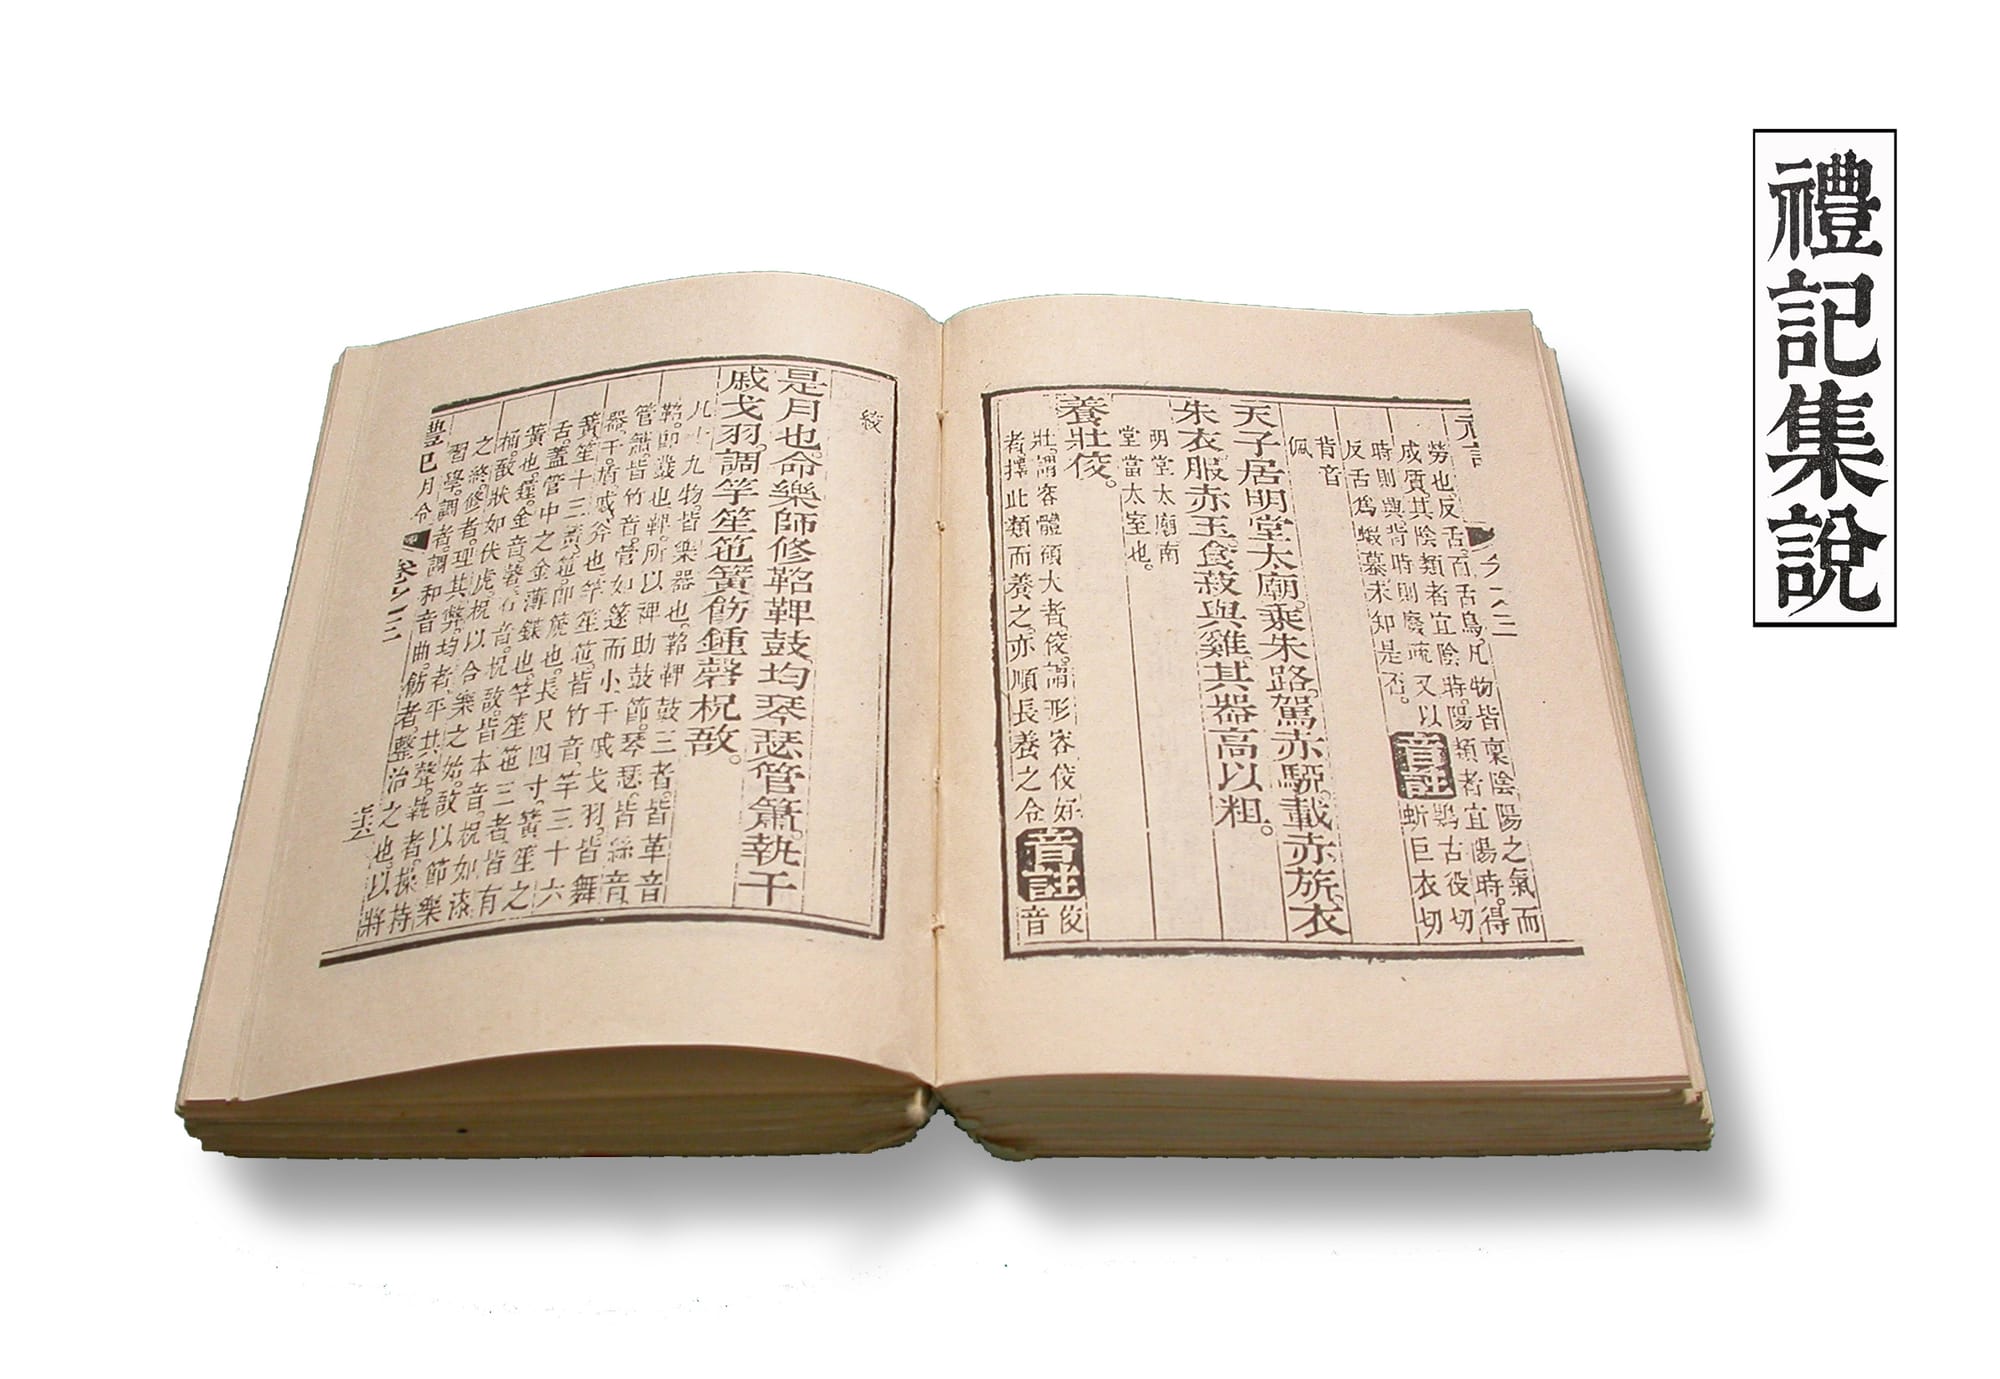 禮記集說
勞也反舌。百舌鳥。凡物皆稟陰陽之氣而
成質其陰類者宜陰時。陽類者宜陽時。得
時則興背時則廢疏又以
反舌爲蝦蟇未知是否。
音註
鵙古役切
蚚巨衣切
背音
佩
天子居明堂太廟。乘朱路。駕赤騮。載赤旂。衣
朱衣服赤玉。食菽與雞。其器高以粗。
明堂太廟南
堂當太室也。
養壯佼。
壯。謂容體碩大者。佼。謂形容佼好
者。擇此類而養之。亦順長養之令
音註
佼音
絞
是月也。命樂師修鞀鞞鼓。均琴瑟管簫。執干
戚戈羽。調竽笙竾簧。飭鍾磬柷敔。
凡十九物。皆樂器也。鞀鞞鼓三者。皆革音
鞀。即鼗也。鞞。所以裨助鼓節。琴瑟。皆絲音。
管簫。皆竹音。管如篴而小。干戚戈羽。皆舞
器。干。盾。戚。斧也。竽笙竾。皆竹音。竽三十六
簧。笙十三簧。竾。即篪也。長尺四寸。簧。笙之
舌。蓋管中之金薄鍱也。竽笙竾三者。皆有
簧也。鍾。金音。磬。石音。柷敔。皆木音。柷如漆
桶。敔狀如伏虎。柷以合樂之始。敔以節樂
之終。修者。理其弊。均者。平其聲。執者。操持
習學。調者。調和音曲。飭者。整治之也。以將
月令
卷之三